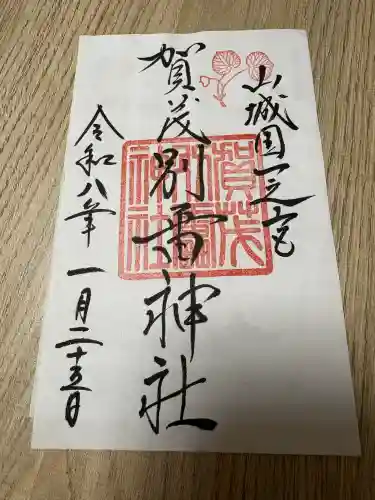 山城国一之宮
賀茂別雷神社
令和八年 一月二十五日
賀茂
別雷
神社